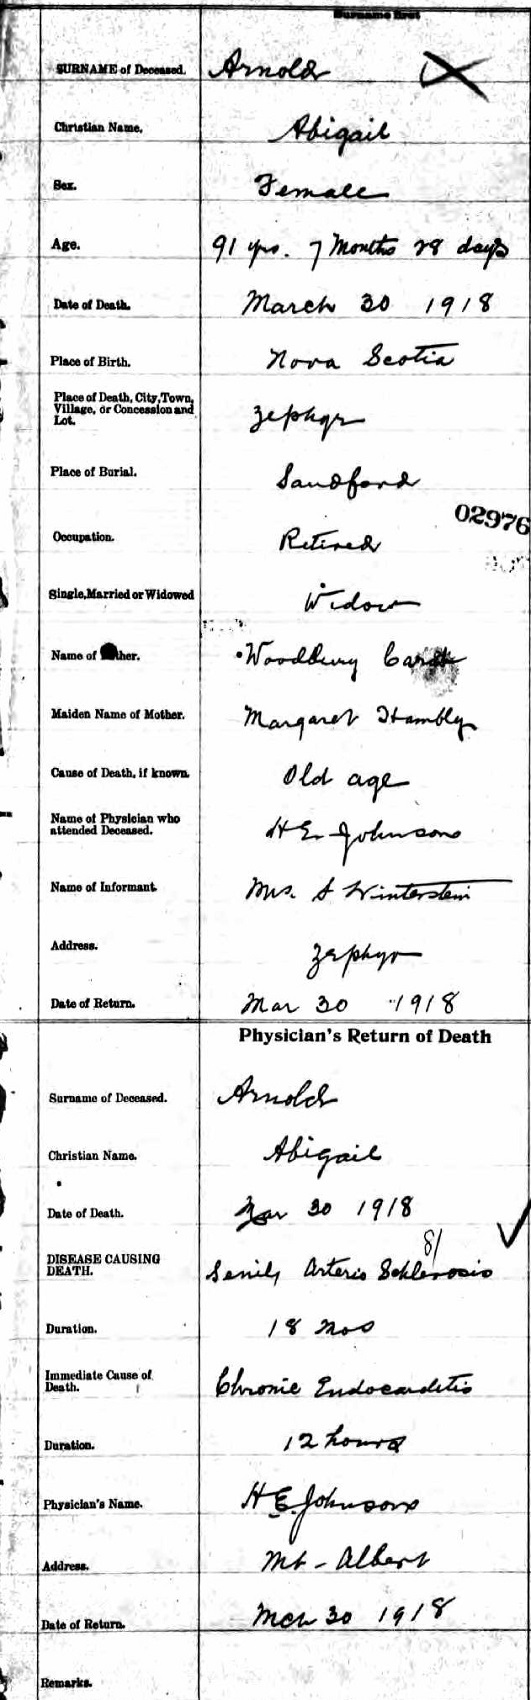 Surname first
SURNAME of Deceased. Arnold
Christian Name. Abigail
Sex. Female
Age. 91 yrs. 7 Months 28 days
Date of Death. March 30 1918
Place of Birth. Nova Scotia
Place of Death, City, Town,
Village, or Concession and
Lot. Zephyr
Place of Burial. Sandford
02976
Occupation. Retired
Single, Married or Widowed Widow
Name of Woodbury
Maiden Name of Mother. Margaret Hambly
Cause of Death, if known. Old age
Name of Physician who
attended Deceased. H E Johnson
Name of Informant. Mrs. A Winterstein
Address. Zephyr
Date of Return. Mar 30 1918
Physician's Return of Death
Surname of Deceased. Arnold
Christian Name. Abigail
Date of Death. Mar 30 1918
81
DISEASE CAUSING
DEATH. Senile Arterio Schlerosis
Duration. 18 mos
Immediate Cause of
Death. Chronic Endocarditis
Duration. 12 hours
Physician's Name. H E Johnson
Address. Mt - Albert
Date of Return. Mch 30 1918
Remarks.